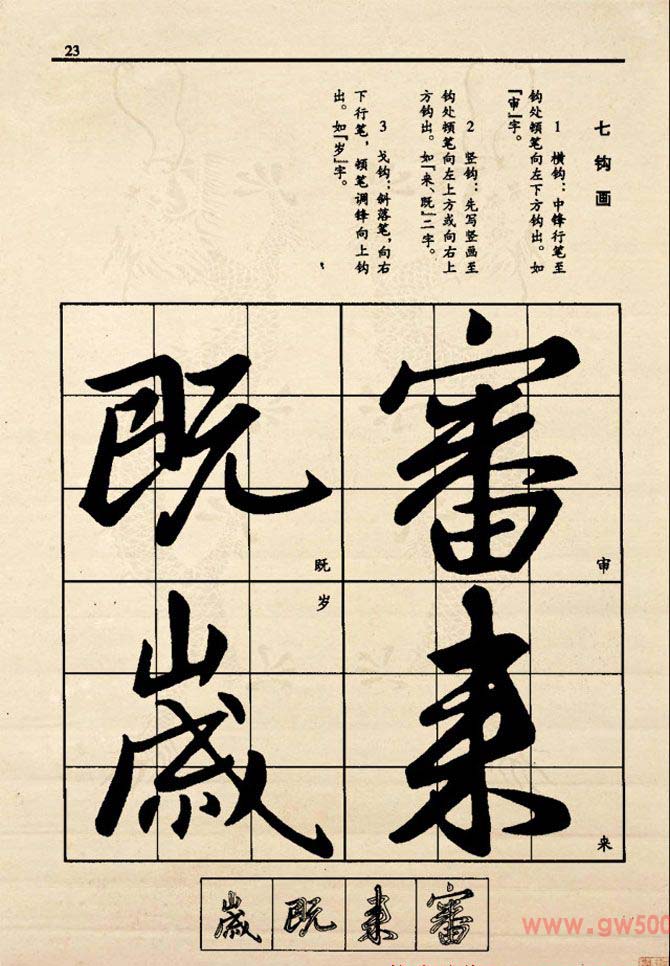 23
七 钩 画
1 横钩：中锋行笔至
钩处顿笔向左下方钩出。如
『审』字。
2 竖钩：先写竖画至
钩处顿笔向左上方或向右上
方钩出。如『来、既』二字。
3 戈钩：斜落笔，向右
下行笔，顿笔调锋向上钩
出。如『岁』字。
審
审
来
来
既
既
歲
岁
歲 既 来 審
www.gw500